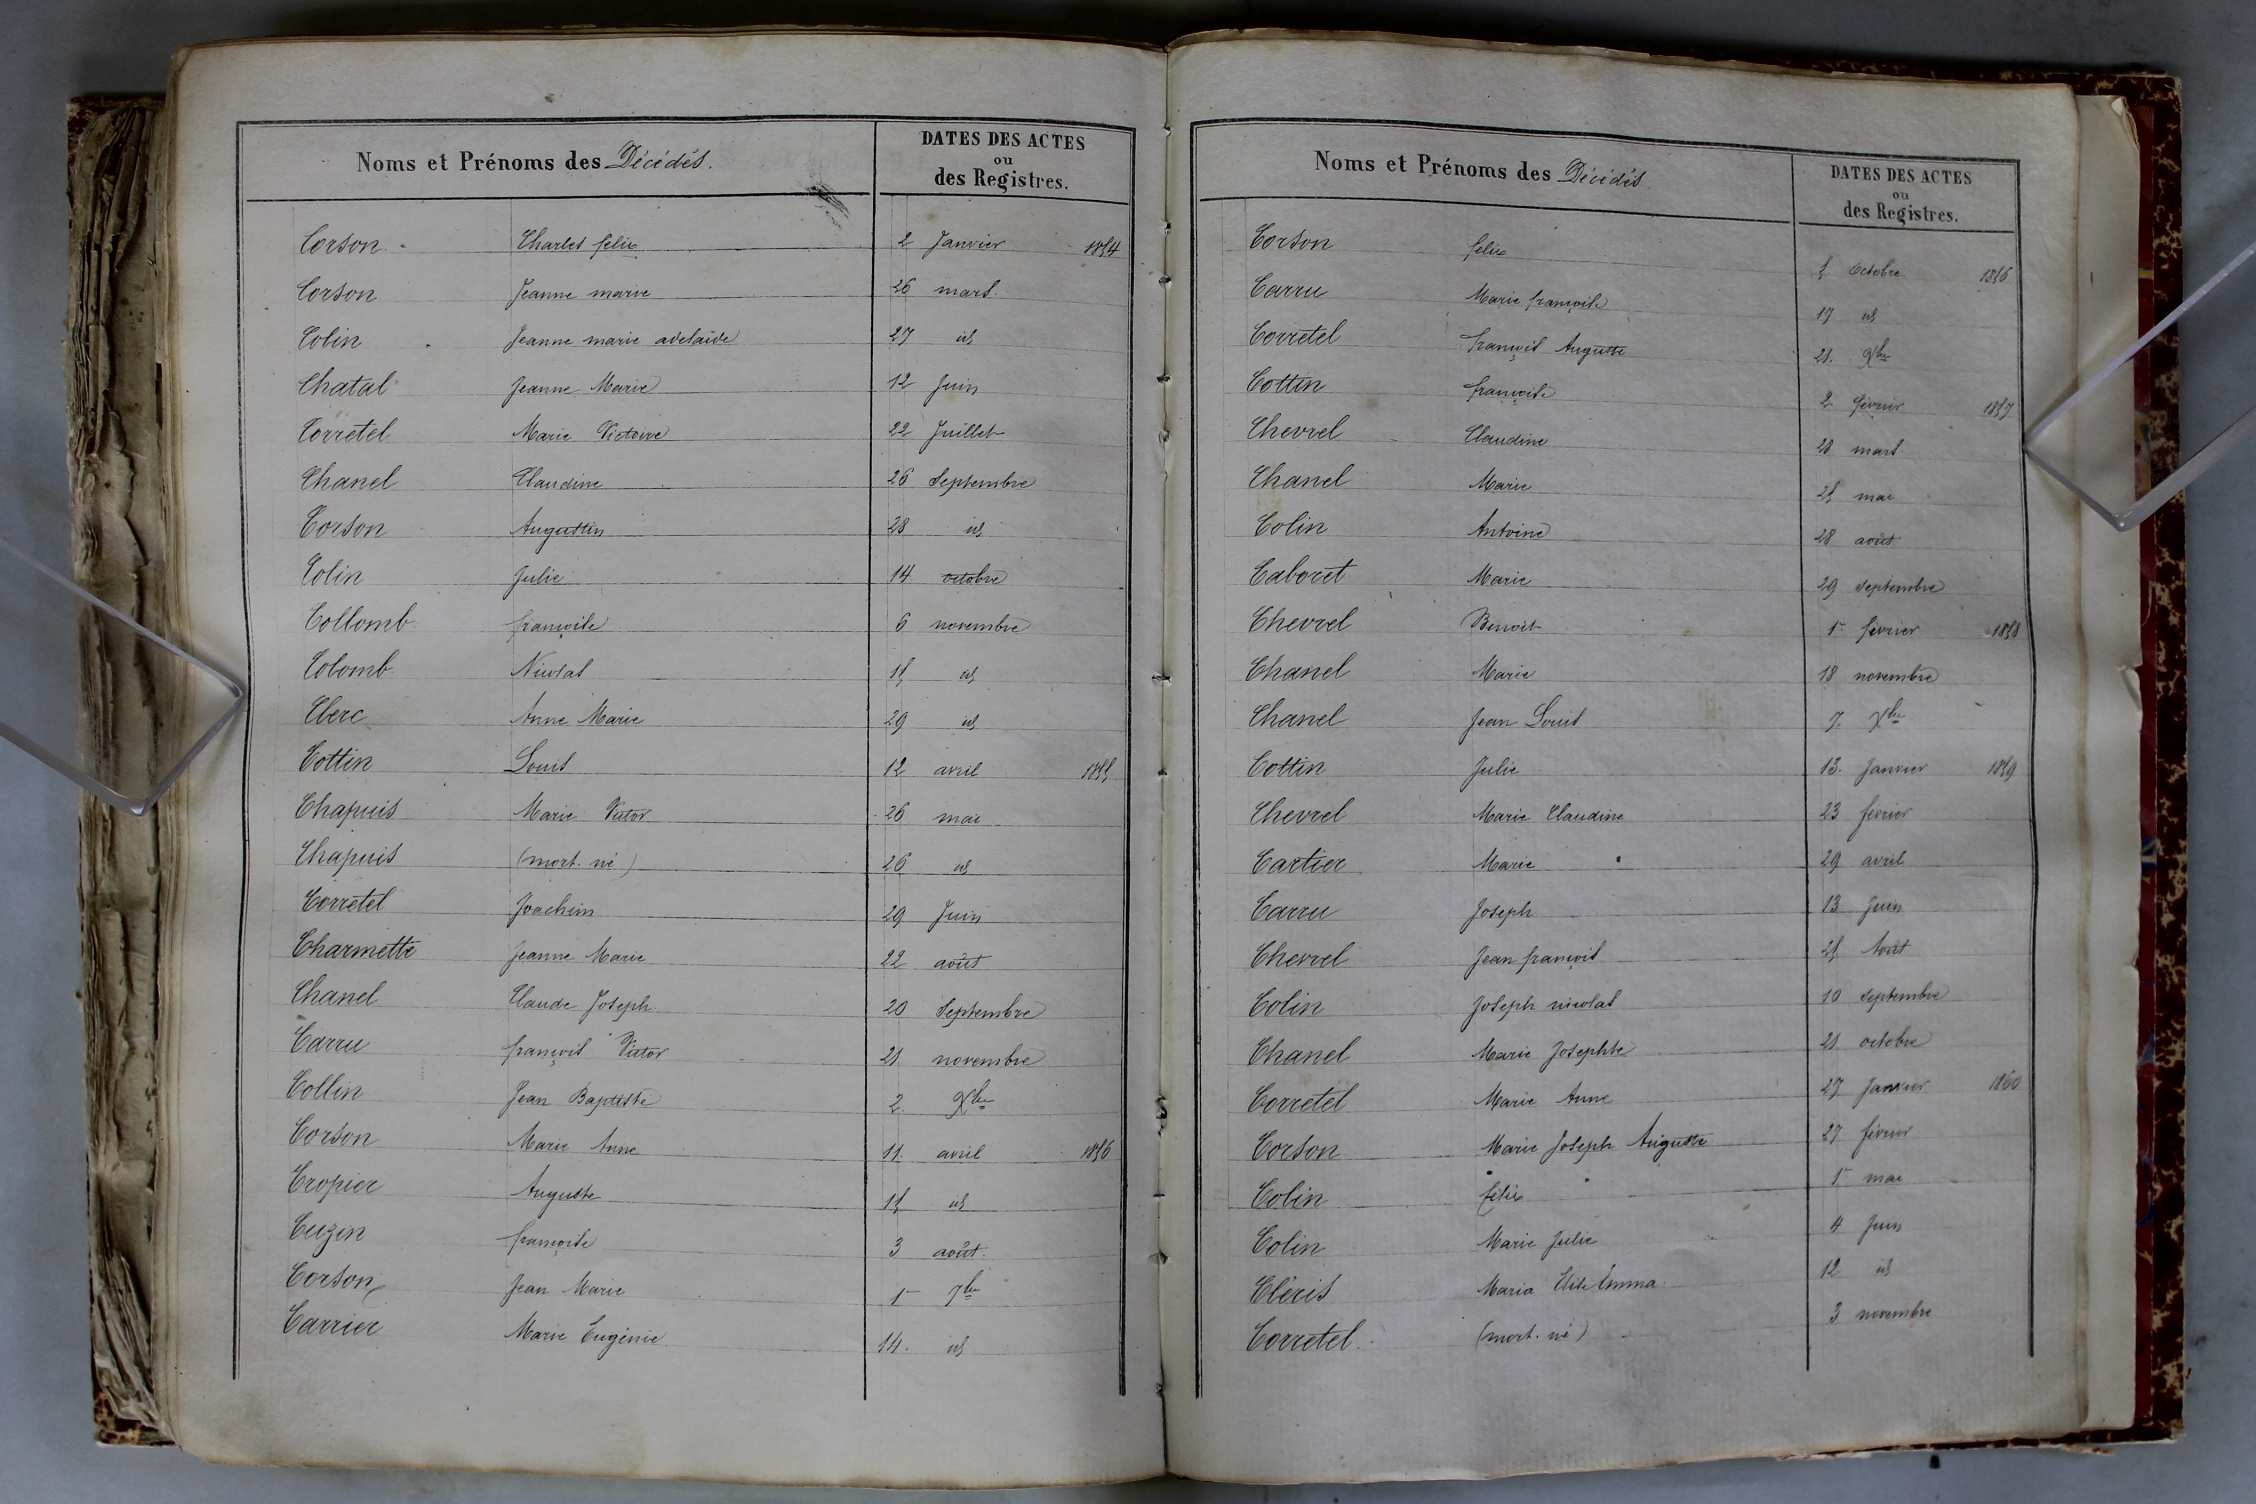 Noms et Prénoms des Décédés.
DATES DES ACTES
ou
des Registres.
Corson Charles felix 2 Janvier 1854
Corson Jeanne marie 26 mars
Colin Jeanne marie adelaïde 27 id
Chatal Jeanne Marie 12 Juin
Corretel Marie Victoire 22 Juillet
Chanel Claudine 26 Septembre
Corson Augustin 28 id
Colin Julie 14 octobre
Collomb françoise 6 novembre
Colomb Nicolas 15 id
Clerc Anne Marie 29 id
Cottin Louis 12 avril 1855
Chapuis Marie Victor 26 mai
Chapuis (mort. né) 26 id
Corretel Joachim 29 Juin
Charmette Jeanne Marie 22 août
Chanel Claude Joseph 20 Septembre
Carru françois Victor 21 novembre
Collin Jean Baptiste 2 Xbre
Corson Marie Anne 11 avril 1856
Cropier Auguste 15 id
Cuzin françoise 3 août
Corson Jean Marie 1r 7bre
Carrier Marie Eugénie 14 id
Noms et Prénoms des Décédés
DATES DES ACTES
ou
des Registres.
Corson felix 5 Octobre 1856
Carru Marie françoise 17 id
Corretel françois Auguste 21 Xbre
Cottin françoise 2 février 1857
Chevrel Claudine 20 mars
Chanel Marie 25 mai
Colin Antoine 28 août
Caboret Marie 29 septembre
Chevrel Benoit 1r février 1858
Chanel Marie 18 novembre
Chanel Jean Louis 7 Xbre
Cottin Julie 13 Janvier 1859
Chevrel Marie Claudine 23 février
Cartier Marie 29 avril
Carru Joseph 13 Juin
Chevrel Jean françois 25 Août
Colin Joseph nicolas 10 septembre
Chanel Marie Josephte 21 octobre
Corretel Marie Anne 27 Janvier 1860
Corson Marie Joseph Auguste 27 février
Colin félix 1r mai
Colin Marie Julie 4 Juin
Cléris Maria Elise Emma 12 id
Corretel (mort. né) 3 novembre